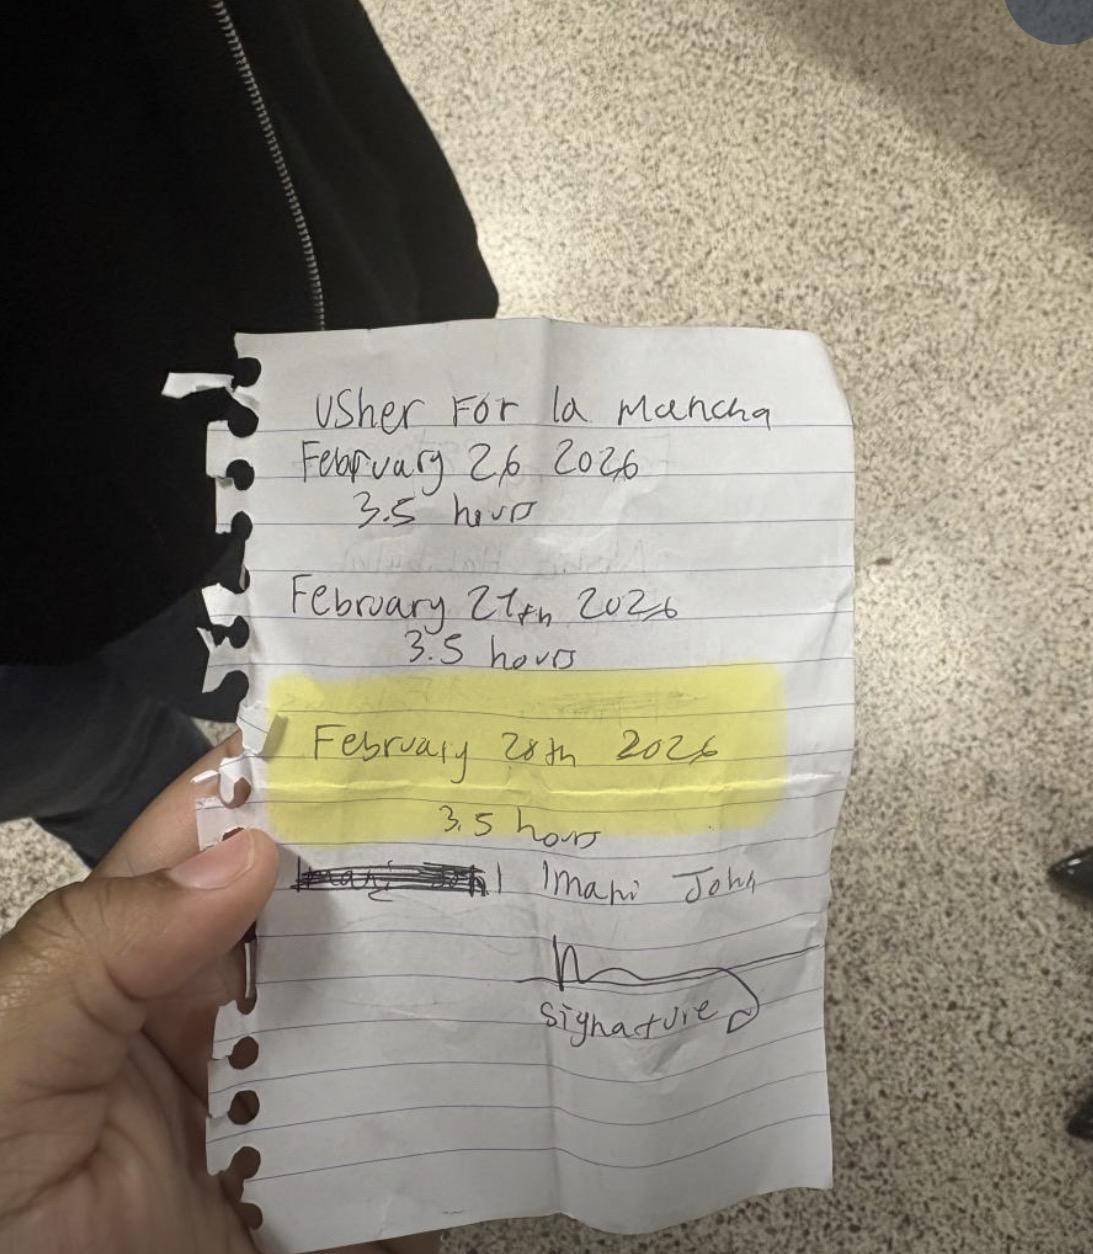 Usher For la Mancha
February 26 2026
3.5 hours
February 27th 2026
3.5 hours
February 28th 2026
3.5 hours
Imani John
signature